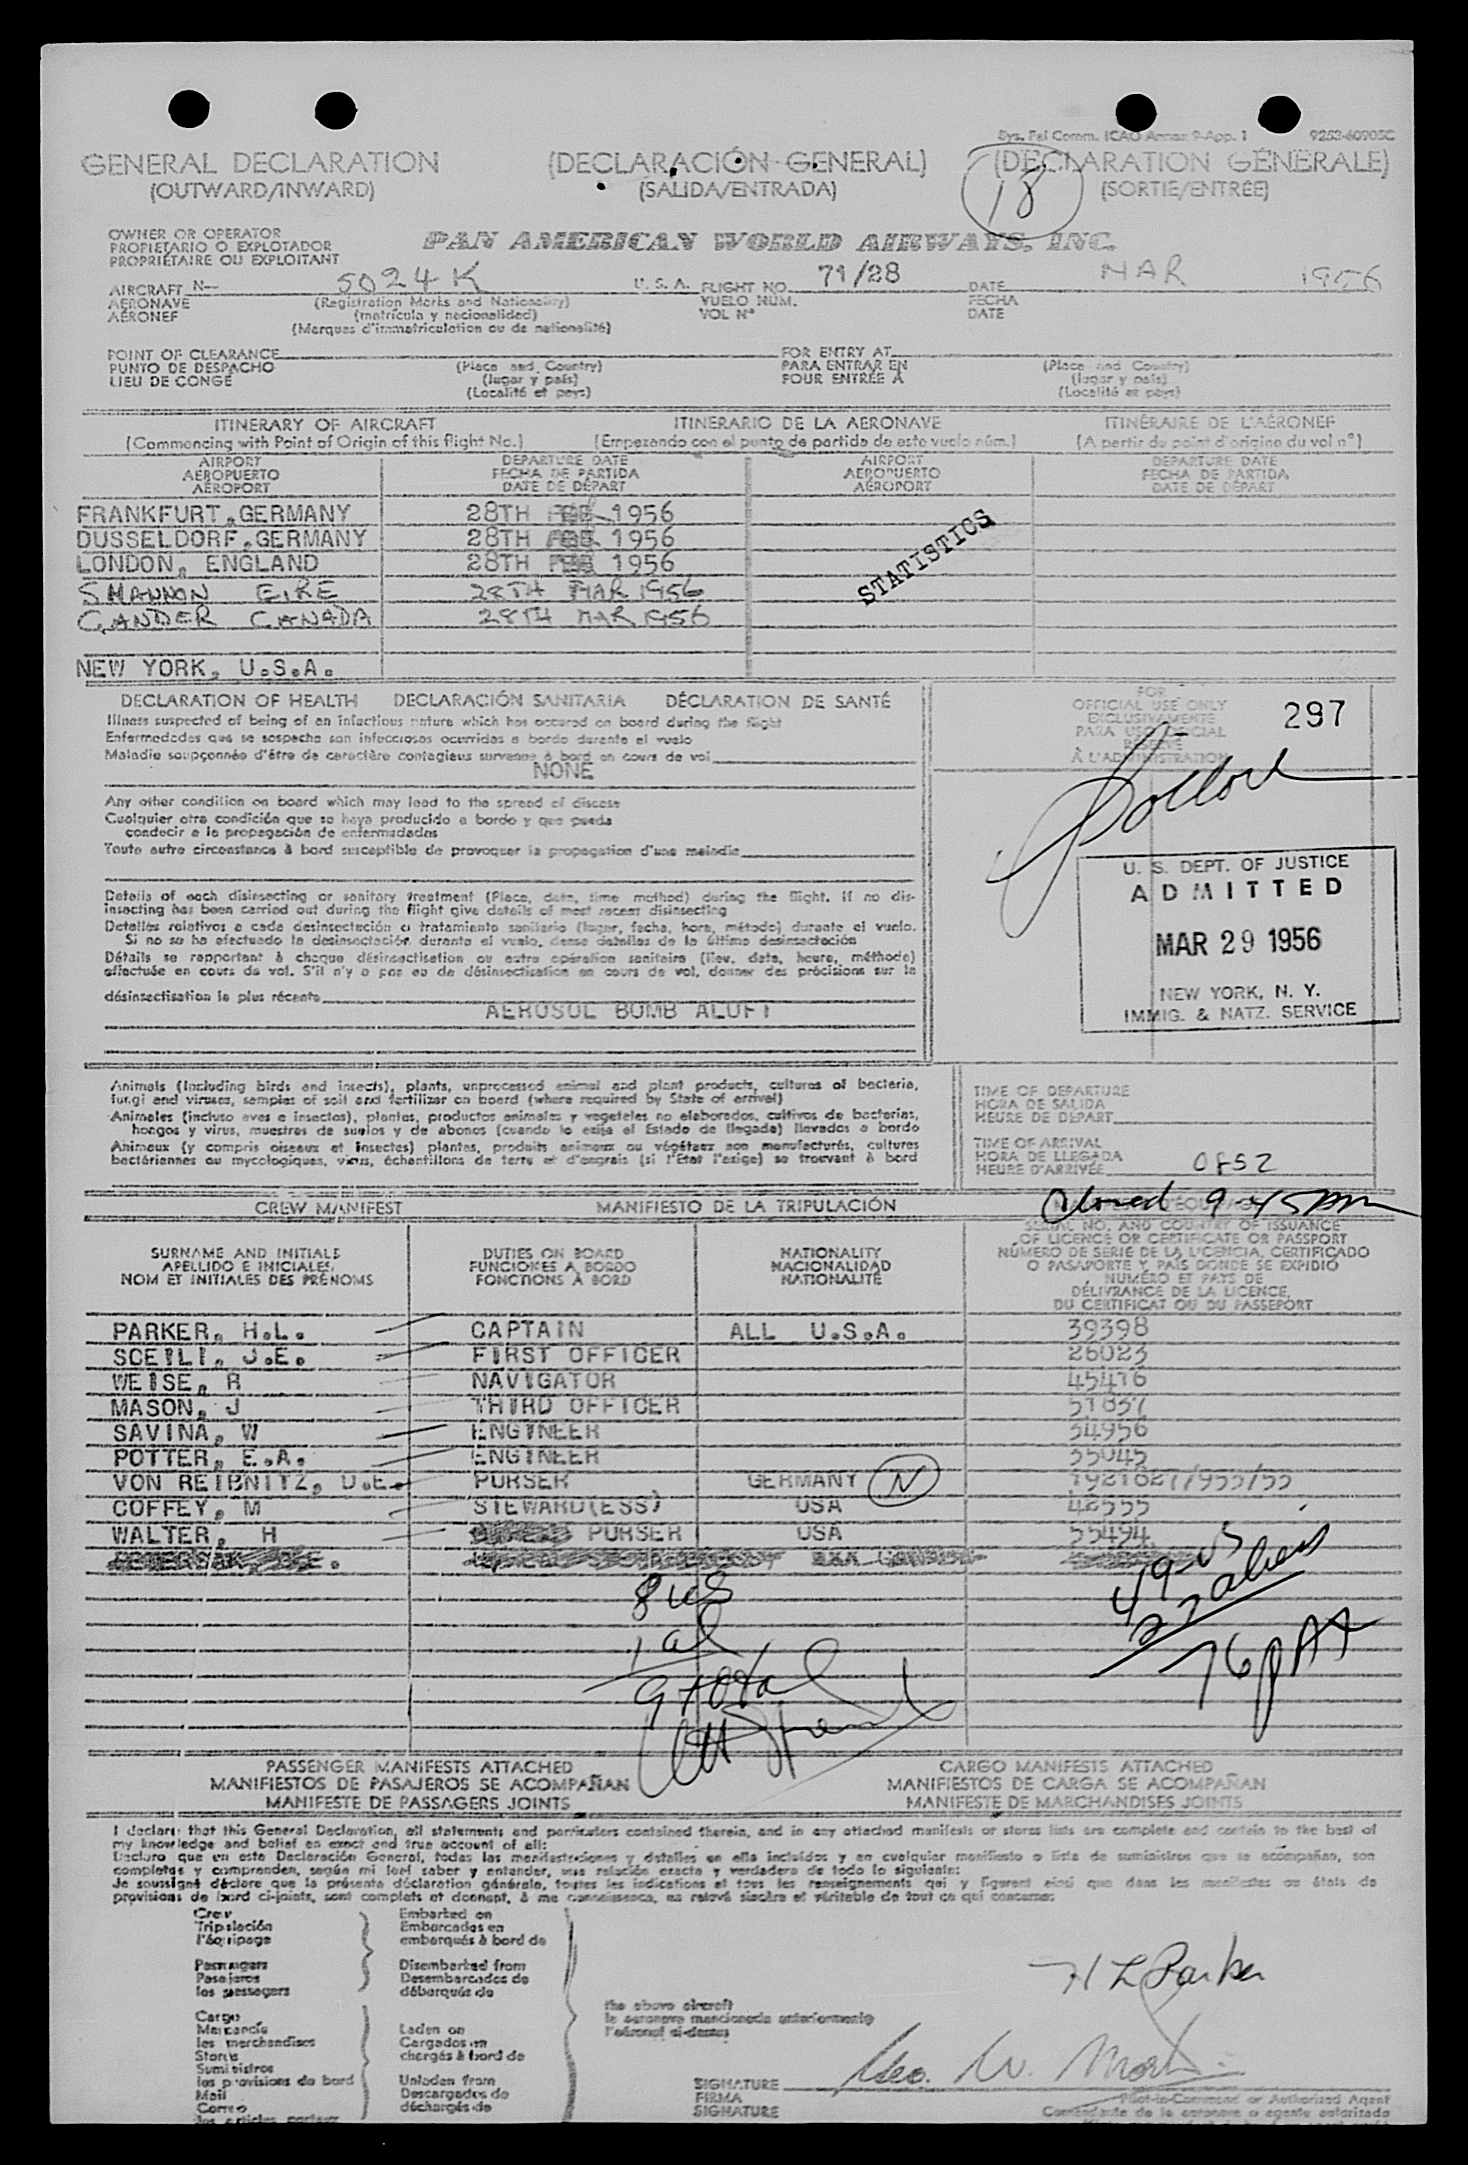 Sys. Fal Comm. ICAO Annex 9-App. 1 9253-60905C
GENERAL DECLARATION (DECLARACIÓN GENERAL) (DÉCLARATION GÉNÉRALE)
(OUTWARD/INWARD) (SALIDA/ENTRADA) (SORTIE/ENTRÉE)
18
OWNER OR OPERATOR
PROPIETARIO O EXPLOTADOR
PROPRIÉTAIRE OU EXPLOITANT
PAN AMERICAN WORLD AIRWAYS, INC.
AIRCRAFT N- 5024K U. S. A. FLIGHT NO. 71/28 DATE MAR 1956
AERONAVE (Registration Marks and Nationality) VUELO NÚM. FECHA
AÉRONEF (matrícula y nacionalidad) VOL Nº DATE
(Marques d'immatriculation ou de nationalité)
POINT OF CLEARANCE FOR ENTRY AT
PUNTO DE DESPACHO (Place and Country) PARA ENTRAR EN (Place and Country)
LIEU DE CONGÉ (lugar y país) POUR ENTRÉE À (lugar y país)
(Localité et pays) (Localité et pays)
ITINERARY OF AIRCRAFT ITINERARIO DE LA AERONAVE ITINÉRAIRE DE L'AÉRONEF
(Commencing with Point of Origin of this flight No.) (Empezando con el punto de partida de este vuelo núm.) (A partir du point d'origine du vol nº)
AIRPORT DEPARTURE DATE AIRPORT DEPARTURE DATE
AEROPUERTO FECHA DE PARTIDA AEROPUERTO FECHA DE PARTIDA
AÉROPORT DATE DE DÉPART AÉROPORT DATE DE DÉPART
FRANKFURT, GERMANY 28TH 1956
DUSSELDORF, GERMANY 28TH 1956
LONDON, ENGLAND 28TH 1956
SHANNON EIRE 28TH MAR 1956
GANDER CANADA 28TH MAR 1956
STATISTICS
NEW YORK, U.S.A.
DECLARATION OF HEALTH DECLARACIÓN SANITARIA DÉCLARATION DE SANTÉ
Illness suspected of being of an infectious nature which has occured on board during the flight
Enfermedades que se sospecha son infecciosas ocurridas a bordo durante el vuelo
Maladie soupçonnée d'être de caractère contagieux survenue à bord en cours de vol
NONE
FOR
OFFICIAL USE ONLY
EXCLUSIVAMENTE
PARA USO OFICIAL
RÉSERVÉ
À L'ADMINISTRATION
297
Any other condition on board which may lead to the spread of disease
Cualquier otra condición que se haya producido a bordo y que pueda
conducir a la propagación de enfermedades
Toute autre circonstance à bord susceptible de provoquer la propagation d'une maladie
Details of each disinsecting or sanitary treatment (Place, date, time method) during the flight. If no dis-
insecting has been carried out during the flight give details of most recent disinsecting
Detalles relativos a cada desinsectación o tratamiento sanitario (lugar, fecha, hora, método) durante el vuelo.
Si no se ha efectuado la desinsectación durante el vuelo, dense detalles de la última desinsectación
Détails se rapportant à chaque désinsectisation ou autre opération sanitaire (lieu, date, heure, méthode)
effectuée en cours de vol. S'il n'y a pas eu de désinsectisation en cours de vol, donner des précisions sur la
désinsectisation la plus récente
AEROSOL BOMB ALOFT
U. S. DEPT. OF JUSTICE
ADMITTED
MAR 29 1956
NEW YORK, N. Y.
IMMIG. & NATZ. SERVICE
Animals (Including birds and insects), plants, unprocessed animal and plant products, cultures of bacteria,
fungi and viruses, samples of soil and fertilizer on board (where required by State of arrival)
Animales (incluso aves e insectos), plantas, productos animales y vegetales no elaborados, cultivos de bacterias,
hongos y virus, muestras de suelos y de abonos (cuando lo exija el Estado de llegada) llevados a bordo
Animaux (y compris oiseaux et insectes) plantes, produits animaux ou végétaux non manufacturés, cultures
bactériennes ou mycologiques, virus, échantillons de terre et d'engrais (si l'Etat l'exige) se trouvant à bord
TIME OF DEPARTURE
HORA DE SALIDA
HEURE DE DÉPART
TIME OF ARRIVAL
HORA DE LLEGADA
HEURE D'ARRIVÉE
9-45 PM
CREW MANIFEST MANIFIESTO DE LA TRIPULACIÓN
SURNAME AND INITIALS DUTIES ON BOARD NATIONALITY SERIAL NO. AND COUNTRY OF ISSUANCE
APELLIDO E INICIALES FUNCIONES A BORDO NACIONALIDAD OF LICENCE OR CERTIFICATE OR PASSPORT
NOM ET INITIALES DES PRÉNOMS FONCTIONS À BORD NATIONALITÉ NÚMERO DE SERIE DE LA LICENCIA, CERTIFICADO
O PASAPORTE Y PAÍS DONDE SE EXPIDIÓ
NUMÉRO ET PAYS DE
DÉLIVRANCE DE LA LICENCE,
DU CERTIFICAT OU DU PASSEPORT
PARKER, H.L. CAPTAIN ALL U.S.A. 39398
SCEILI, J.E. FIRST OFFICER 26023
WEISE, R NAVIGATOR 45416
MASON, J THIRD OFFICER 51857
SAVINA, W ENGINEER 54956
POTTER, E.A. ENGINEER 55045
VON REIBNITZ, D.E. PURSER GERMANY N 1921027/955/55
COFFEY, M STEWARD(ESS) USA 42555
WALTER, H PURSER USA 55494
8 US
1 al
9 total
49 US
27 aliens
76 PAX
PASSENGER MANIFESTS ATTACHED CARGO MANIFESTS ATTACHED
MANIFIESTOS DE PASAJEROS SE ACOMPAÑAN MANIFIESTOS DE CARGA SE ACOMPAÑAN
MANIFESTE DE PASSAGERS JOINTS MANIFESTE DE MARCHANDISES JOINTS
I declare that this General Declaration, all statements and particulars contained therein, and in any attached manifests or stores lists are complete and contain to the best of
my knowledge and belief an exact and true account of all:
Declaro que en esta Declaración General, todas las manifestaciones y detalles en ella incluidos y en cualquier manifiesto o lista de suministros que se acompañan, son
completas y comprenden, según mi leal saber y entender, una relación exacta y verdadera de todo lo siguiente:
Je soussigné déclare que la présente déclaration générale, toutes les indications et tous les renseignements qui y figurent ainsi que dans les manifestes ou états de
provisions de bord ci-joints, sont complets et donnent, à ma connaissance, un relevé sincère et véritable de tout ce qui concerne:
Crew Embarked on
Tripulación Embarcados en
l'équipage embarqués à bord de
Passengers Disembarked from
Pasajeros Desembarcados de
les passagers débarqués de
Cargo
Mercancía Laden on
les marchandises Cargados en
Stores chargés à bord de
Suministros
les provisions de bord Unladen from
Mail Descargados de
Correo déchargés de
the above aircraft
la aeronave mencionada anteriormente
l'aéronef ci-dessus
H L Parker
Geo. W.
SIGNATURE
FIRMA
SIGNATURE
Pilot-in-Command or Authorized Agent
Comandante de la aeronave o agente autorizado